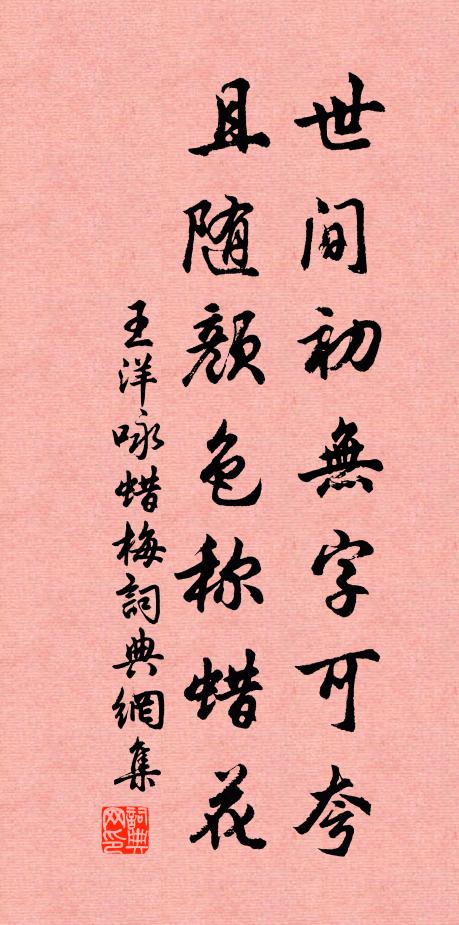 世间初無字可夸
且随颜色称蜡花
王洋咏蜡梅詞典網集
詞典网印